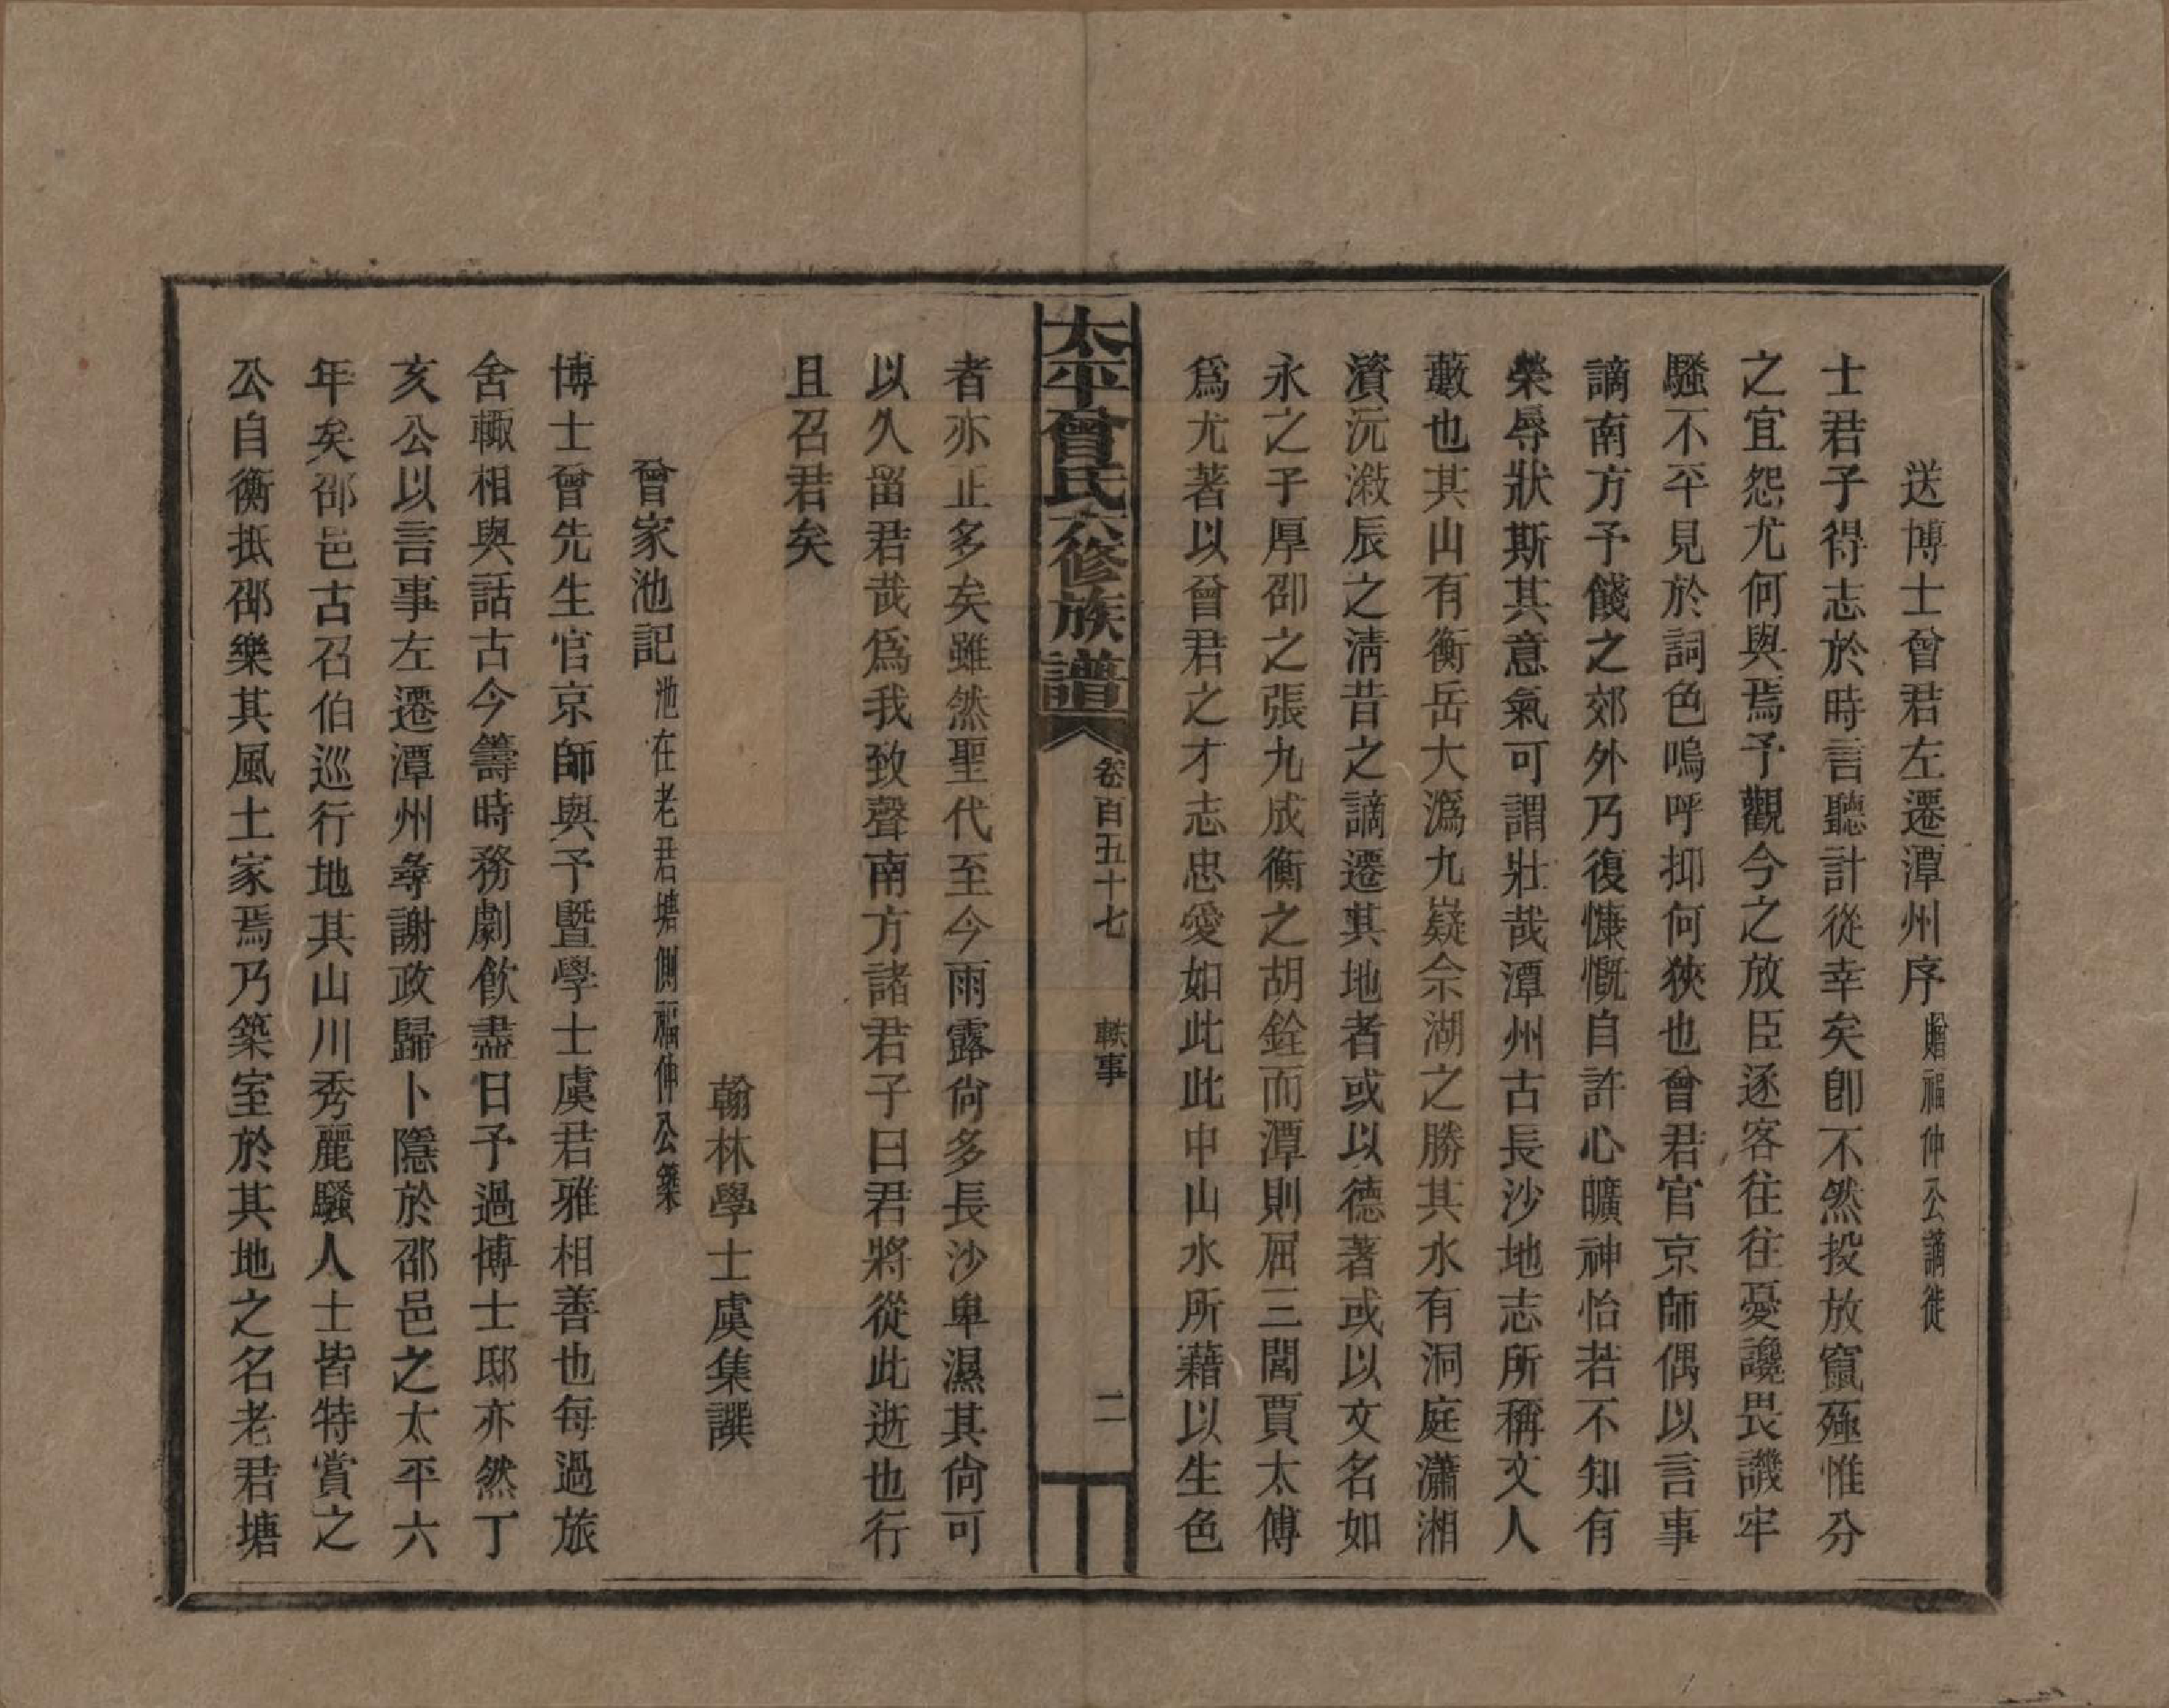 送博士曾君左遷潭州序贈福仲公謫徙
士君子得志於時言聽計從幸矣卽不然投放竄殛惟分
之宜怨尤何與焉予觀今之放臣逐客往往憂讒畏譏牢
騷不平見於詞色嗚呼抑何狹也曾君官京師偶以言事
謫南方予餞之郊外乃復慷慨自許心曠神怡若不知有
榮辱狀斯其意氣可謂壯哉潭州古長沙地志所稱文人
藪也其山有衡岳大潙九嶷佘湖之勝其水有洞庭瀟湘
濱沅漵辰之淸昔之謫遷其地者或以德著或以文名如
永之子厚邵之張九成衡之胡銓而潭則屈三閭賈太傅
爲尤著以曾君之才志忠愛如此此中山水所藉以生色
太平曾氏六修族譜
卷百五十七
軼事
二
者亦正多矣雖然聖代至今雨露尙多長沙卑濕其尙可
以久留君哉爲我致聲南方諸君子曰君將從此逝也行
且召君矣
翰林學士虞集譔
曾家池記池在老君塘側福仲公築
博士曾先生官京師與予暨學士虞君雅相善也每過旅
舍輙相與話古今籌時務劇飮盡日予過博士邸亦然丁
亥公以言事左遷潭州尋謝政歸卜隱於邵邑之太平六
年矣邵邑古召伯巡行地其山川秀麗騷人士皆特賞之
公自衡抵邵樂其風土家焉乃築室於其地之名老君塘